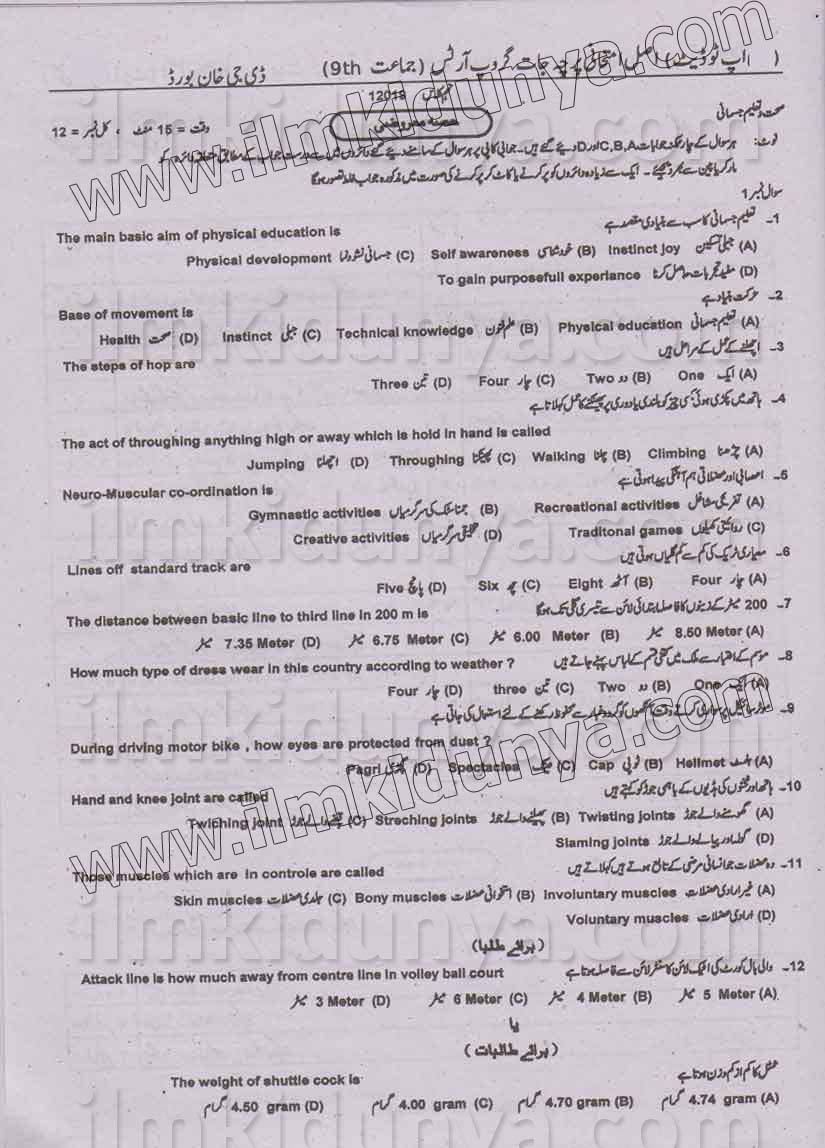 ( اپ ٹو ڈیٹ ) اصل امتحانی پرچہ جات، گروپ آرٹس (جماعت 9th) ڈی جی خان بورڈ
12018
صحت تعلیم جسمانی حصہ معروضی وقت = 15 منٹ ، کل نمبر = 12
نوٹ: ہر سوال کے چار ممکنہ جوابات C,B,A اور D دیے گئے ہیں۔ جوابی کاپی پر ہر سوال کے سامنے دیے گئے دائروں میں سے درست جواب کے مطابق متعلقہ دائرہ کو
مارکر یا پین سے بھر دیجئے۔ ایک سے زیادہ دائروں کو پر کرنے یا کاٹ کر پر کرنے کی صورت میں مذکورہ جواب غلط تصور ہوگا
سوال نمبر 1
1۔ تعلیم جسمانی کا سب سے بنیادی مقصد ہے
The main basic aim of physical education is
(A) Instinct joy جبلی تسکین (B) Self awareness خودشناسی (C) Physical development جسمانی نشوونما
(D) To gain purposefull experiance مفید تجربات حاصل کرنا
2۔ حرکت بنیاد ہے
Base of movement is
(A) Physical education تعلیم جسمانی (B) Technical knowledge علم فنون (C) Instinct جبلی (D) Health صحت
3۔ اچھلنے کے عمل کے مراحل ہیں
The steps of hop are
(A) One ایک (B) Two دو (C) Four چار (D) Three تین
4۔ ہاتھ میں پکڑی ہوئی کسی چیز کو بلندی یا دوری پر پھینکنے کا عمل کہلاتا ہے
The act of throughing anything high or away which is hold in hand is called
(A) Climbing چڑھنا (B) Walking چلنا (C) Throughing پھینکنا (D) Jumping اچھلنا
5۔ اعصابی اور عضلاتی ہم آہنگی پیدا ہوتی ہے
Neuro-Muscular co-ordination is
(A) Recreational activities تفریحی مشاغل (B) Gymnastic activities جمناسٹک کی سرگرمیاں
(C) Traditonal games روایتی کھیلوں (D) Creative activities تخلیقی سرگرمیاں
6۔ معیاری ٹریک کی کم سے کم گلیاں ہوتی ہیں
Lines off standard track are
(A) Four چار (B) Eight آٹھ (C) Six چھ (D) Five پانچ
7۔ 200 میٹر کے ٹریک کا فاصلہ ابتدائی لائن سے تیسری گلی تک ہوگا
The distance between basic line to third line in 200 m is
(A) 8.50 Meter میٹر (B) 6.00 Meter میٹر (C) 6.75 Meter میٹر (D) 7.35 Meter میٹر
8۔ موسم کے اعتبار سے ملک میں کتنی قسم کے لباس پہنے جاتے ہیں
How much type of dress wear in this country according to weather ?
(A) One ایک (B) Two دو (C) three تین (D) Four چار
9۔ موٹر سائیکل پر سواری کرتے وقت آنکھوں کو گردوغبار سے محفوظ رکھنے کے لئے استعمال کی جاتی ہے
During driving motor bike , how eyes are protected from dust ?
(A) Hellmet ہلمٹ (B) Cap ٹوپی (C) Spectacles عینک (D) Pagri پگڑی
10۔ ہاتھ اور گھٹنوں کی ہڈیوں کے باہمی جوڑ کو کہتے ہیں
Hand and knee joint are called
(A) Twisting joints گھومنے والے جوڑ (B) Streching joints پھیلنے والے جوڑ (C) Twiching joint والے جوڑ
(D) Slaming joints گولہ اور پیالے والے جوڑ
11۔ وہ عضلات جو انسانی مرضی کے تابع ہوتے ہیں کہلاتے ہیں
Those muscles which are in controle are called
(A) Involuntary muscles غیر ارادی عضلات (B) Bony muscles استخوانی عضلات (C) Skin muscles جلدی عضلات
(D) Voluntary muscles ارادی عضلات
(برائے طلبا)
12۔ والی بال کورٹ کی اٹیک لائن کا سنٹر لائن سے فاصلہ ہوتا ہے
Attack line is how much away from centre line in volley ball court
(A) 5 Meter میٹر (B) 4 Meter میٹر (C) 6 Meter میٹر (D) 3 Meter میٹر
یا
(برائے طالبات)
شٹل کا کم از کم وزن ہوتا ہے
The weight of shuttle cock is
(A) 4.74 gram گرام (B) 4.70 gram گرام (C) 4.00 gram گرام (D) 4.50 gram گرام
www.ilmkidunya.com
www.ilmkidunya.com
ilmkidunya.com
ilmkidunya.com
ilmkidunya.com
ilmkidunya.com